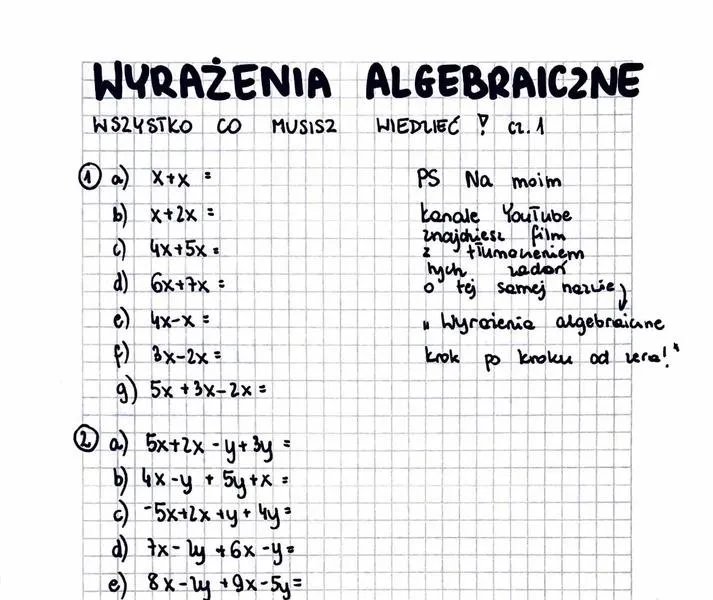 WYRAŻENIA ALGEBRAICZNE
WSZYSTKO CO MUSISZ WIEDZIEĆ! cz. 1
① a) x+x =
b) x+2x =
c) 4x+5x =
d) 6x+7x =
e) 4x-x =
f) 3x-2x =
g) 5x+3x-2x =
PS Na moim
kanale YouTube
znajdziesz film
z tłumaczeniem
tych zadań
o tej samej nazwie
"Wyrażenia algebraiczne
krok po kroku od zera!"
② a) 5x+2x-y+3y =
b) 4x-y+5y+x =
c) -5x+2x+y+4y=
d) 7x-2y+6x-y=
e) 8x-2y+9x-5y=